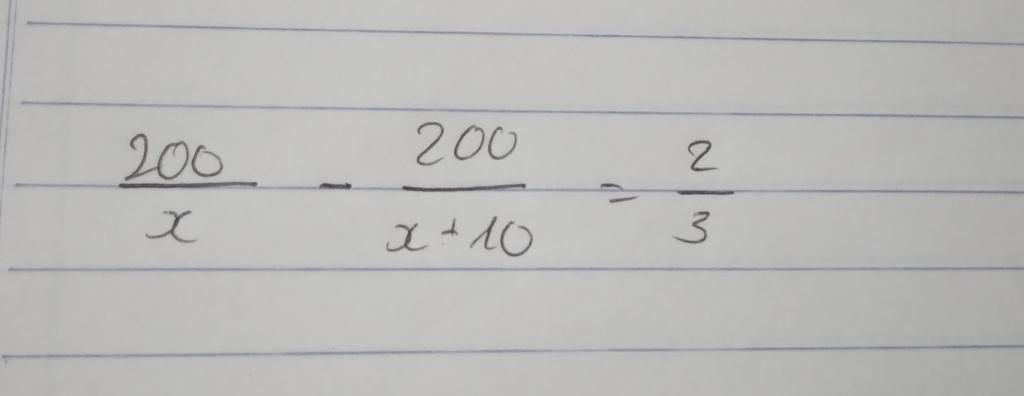 200/x - 200/(x+10) = 2/3